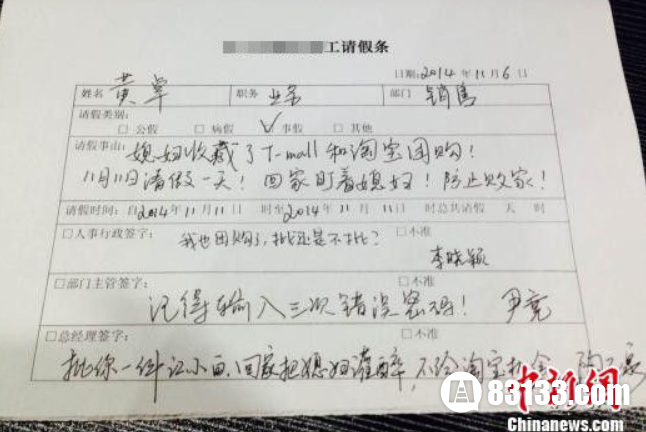 工请假条
日期:2014年11月6日
姓名 黄卓 职务 业务 部门 销售
请假类别:
□公假 □病假 ✓事假 □其他
请假事由: 媳妇收藏了T-mall和淘宝团购!
11月11日请假一天! 回家盯着媳妇! 防止败家!
请假时间: 自2014年11月11日 时至2014年11月11日 时总共请假 天 时
□人事行政签字: □不准
我也团购了,批还是不批?
李晓颖
□部门主管签字: □不准
记得输入三次错误密码! 尹亮
□总经理签字: □不准
批你一件江小白,回家把媳妇灌醉,不给淘宝机会
中新网
83133.com
Chinanews.com